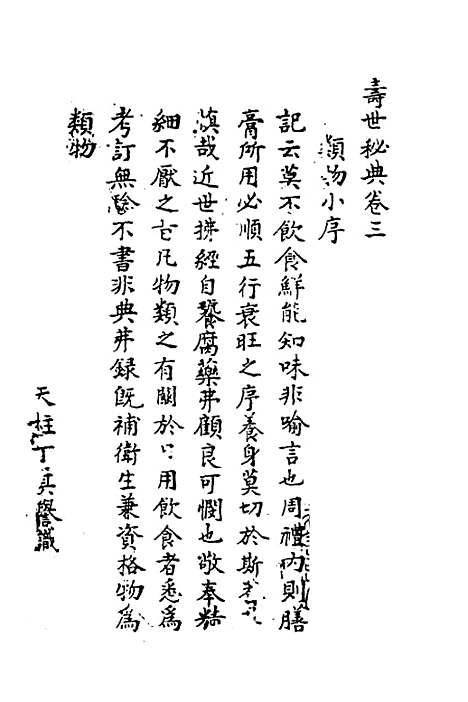 壽世秘典卷三
類物小序
記云莫不飲食鮮能知味非喻言也周禮內則膳
膏所用必順五行衰旺之序養身莫切於斯
慎哉近世攡經自餮腐藥弗顧良可憫也敬奉精
細不厭之旨凡物類之有關於日用飲食者悉為
考訂無驗不書非典弗錄旣補衛生兼資格物為
類物
天柱丁其譽識